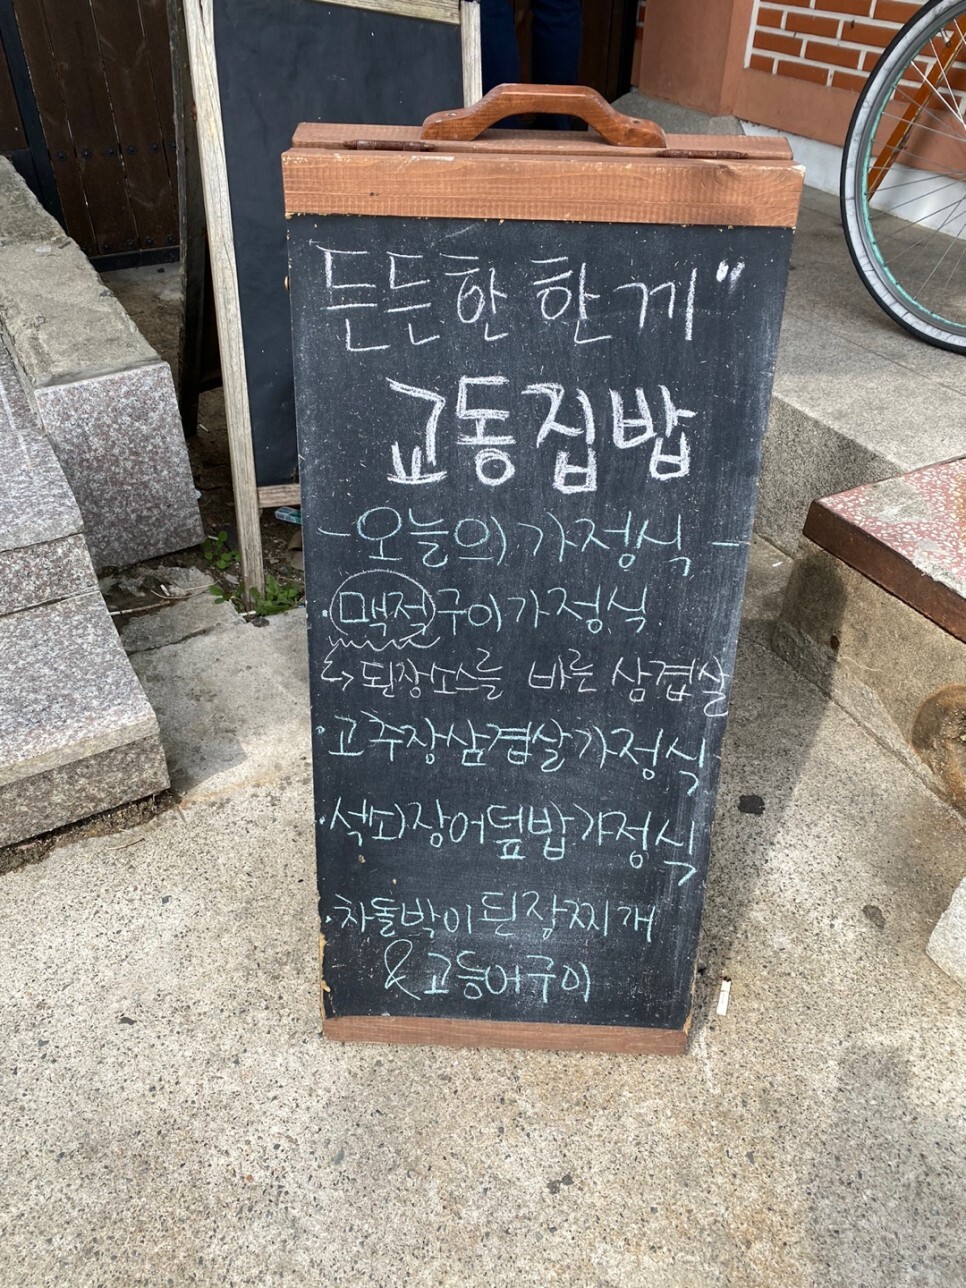 든든한 한끼"
교동집밥
-오늘의 가정식-
·맥적구이가정식
↳ 된장소스를 바른 삼겹살
·고추장삼겹살가정식
·석쇠장어덮밥가정식
·차돌박이된장찌개
&고등어구이